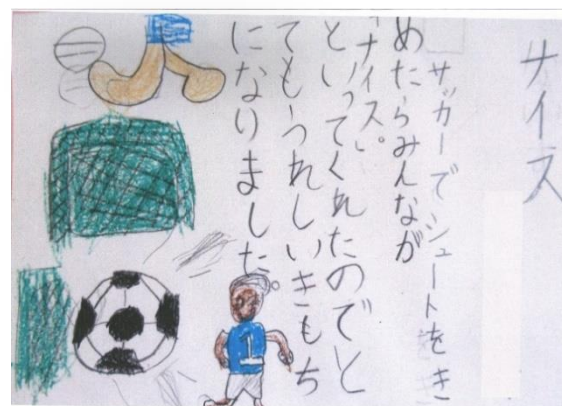 ナイス
サッカーでシュートをき
めたらみんなが
「ナイス。」
といってくれたのでと
てもうれしいきもち
になりました。
1